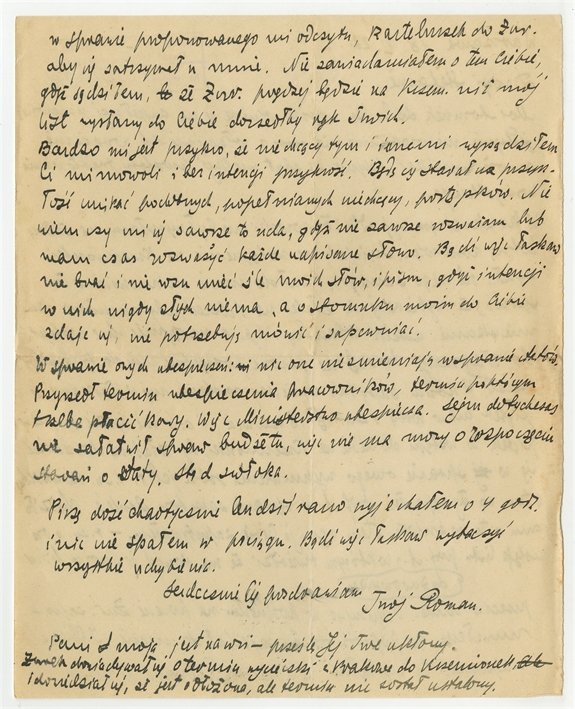 w sprawie proponowanego mi odczytu, Karteluszek do Żur.
aby się zatrzymał u mnie. Nie zawiadamiałem o tem Ciebie,
gdyż sądziłem, że Żur. prędzej będzie na Krzem. niż mój
list wysłany do Ciebie doszedłby rąk Twoich.
Bardzo mi jest przykro, że niechcący tym i innemi wyrządziłem
Ci mimowoli i bez intencji przykrość. Będę się starał na przysz-
łość unikać podobnych, popełnianych niechcący, postępków. Nie
wiem czy mi się zawsze to uda, gdyż nie zawsze rozważam lub
mam czas rozważyć każde napisane słowo. Bądź więc łaskaw
nie brać i nie rozumieć źle moich słów, i pism, gdyż intencji
w nich nigdy złych niema, a o stosunku moim do Ciebie
zdaje się, nie potrzebuję mówić i zapewniać.
W sprawie onych ubezpieczeń: nic one nie zmieniają w sprawie etatów.
Przyszedł termin ubezpieczenia pracowników, termin po którym
trzeba płacić kary. Więc Ministerstwo ubezpiecza. Sejm dotychczas
nie załatwił spraw budżetu, więc nie ma mowy o rozpoczęciu
starań o etaty. Stąd zwłoka.
Piszę dość chaotycznie bo dziś rano wyjechałem o 4 godz.
i nic nie spałem w pociągu. Bądź więc łaskaw wybaczyć
wszystkie uchybienia.
Serdecznie Cię pozdrawiam
Twój Roman.
Pani moja jest na wsi – prześlę Jej Twe ukłony.
Żurek dowiadywał się o termin wycieczki z Krakowa do Krzemionek,
i dowiedział się, że jest odłożona, ale termin nie został ustalony.